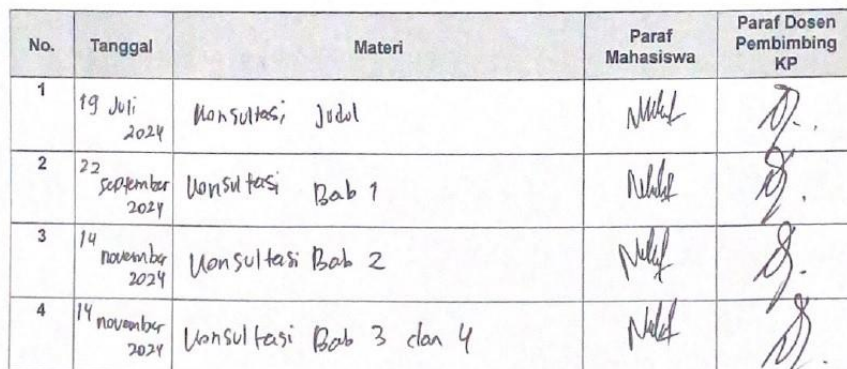 No. Tanggal Materi Paraf Mahasiswa Paraf Dosen Pembimbing KP
1 19 Juli 2024 Konsultasi Judul
2 22 September 2024 Konsultasi Bab 1
3 14 november 2024 Konsultasi Bab 2
4 14 november 2024 Konsultasi Bab 3 dan 4